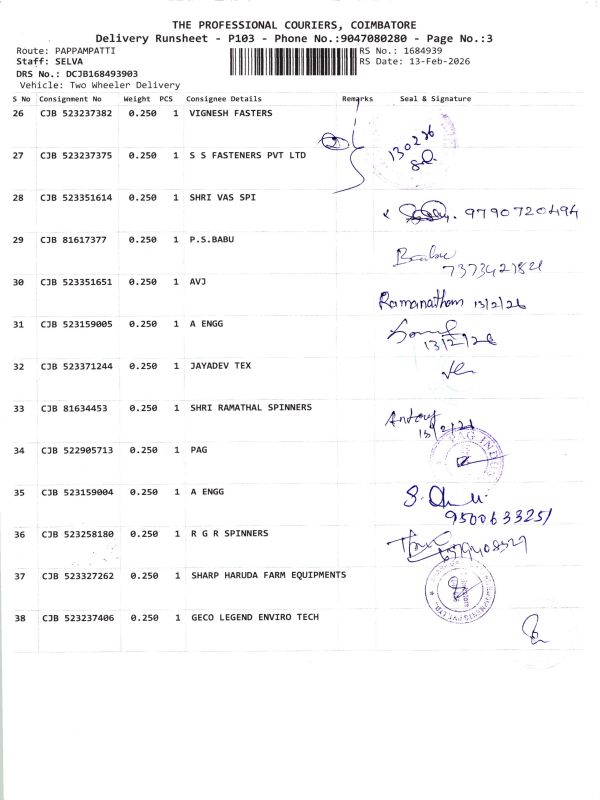 THE PROFESSIONAL COURIERS, COIMBATORE
Delivery Runsheet - P103 - Phone No.:9047080280 - Page No.:3
Route: PAPPAMPATTI
RS No.: 1684939
Staff: SELVA
RS Date: 13-Feb-2026
DRS No.: DCJB168493903
Vehicle: Two Wheeler Delivery
S No Consignment No Weight PCS Consignee Details Remarks Seal & Signature
26 CJB 523237382 0.250 1 VIGNESH FASTERS
130226
27 CJB 523237375 0.250 1 S S FASTENERS PVT LTD
28 CJB 523351614 0.250 1 SHRI VAS SPI
9790720494
29 CJB 81617377 0.250 1 P.S.BABU
Babu
30 CJB 523351651 0.250 1 AVJ
Ramanatham 13/2/26
31 CJB 523159005 0.250 1 A ENGG
13/2/26
32 CJB 523371244 0.250 1 JAYADEV TEX
33 CJB 81634453 0.250 1 SHRI RAMATHAL SPINNERS
Antony
13/2/26
34 CJB 522905713 0.250 1 PAG
PAG INDUS
35 CJB 523159004 0.250 1 A ENGG
9500633251
36 CJB 523258180 0.250 1 R G R SPINNERS
37 CJB 523327262 0.250 1 SHARP HARUDA FARM EQUIPMENTS
38 CJB 523237406 0.250 1 GECO LEGEND ENVIRO TECH